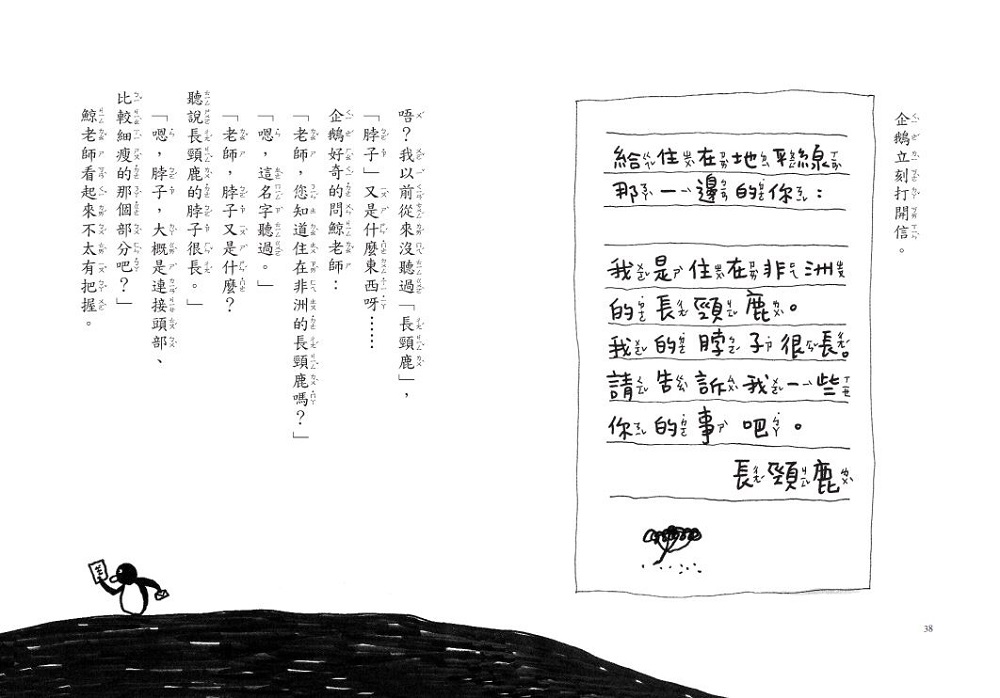 企鵝立刻打開信。
給住在地平線
那一邊的你：
我是住在非洲
的長頸鹿。
我的脖子很長。
請告訴我一些
你的事吧。
長頸鹿
唔？我以前從來沒聽過「長頸鹿」，
「脖子」又是什麼東西呀……
企鵝好奇的問鯨老師：
「老師，您知道住在非洲的長頸鹿嗎？」
「嗯，這名字聽過。」
「老師，脖子又是什麼？
聽說長頸鹿的脖子很長。」
「嗯，脖子，大概是連接頭部、
比較細瘦的那個部分吧？」
鯨老師看起來不太有把握。
38